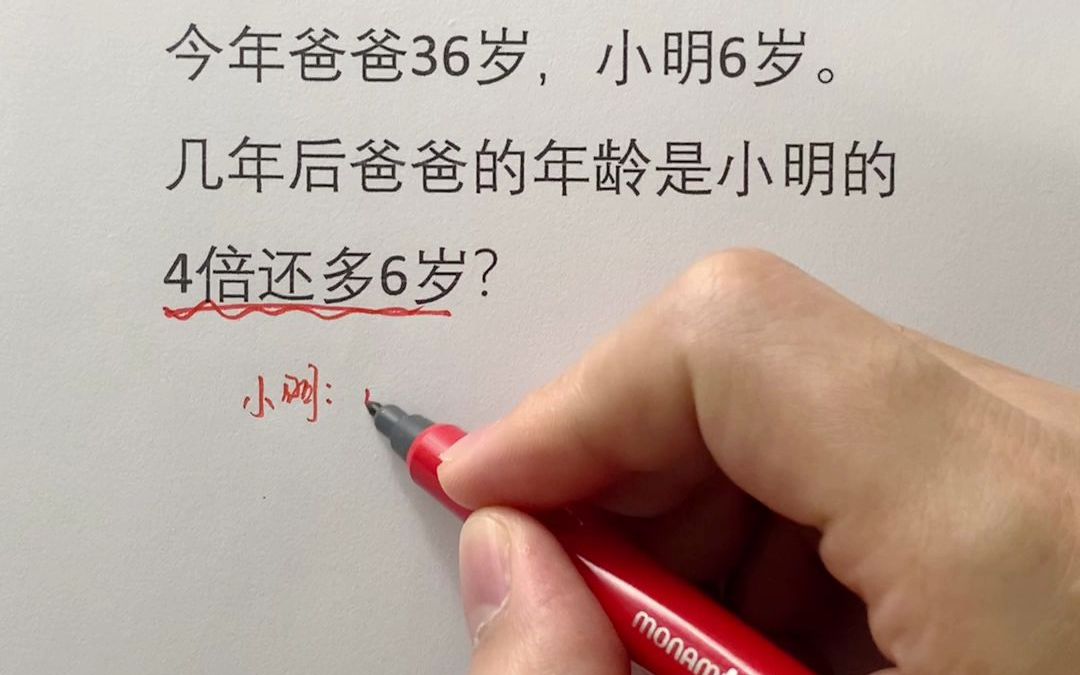 今年爸爸36岁，小明6岁。
几年后爸爸的年龄是小明的
4倍还多6岁？
小明：
monam